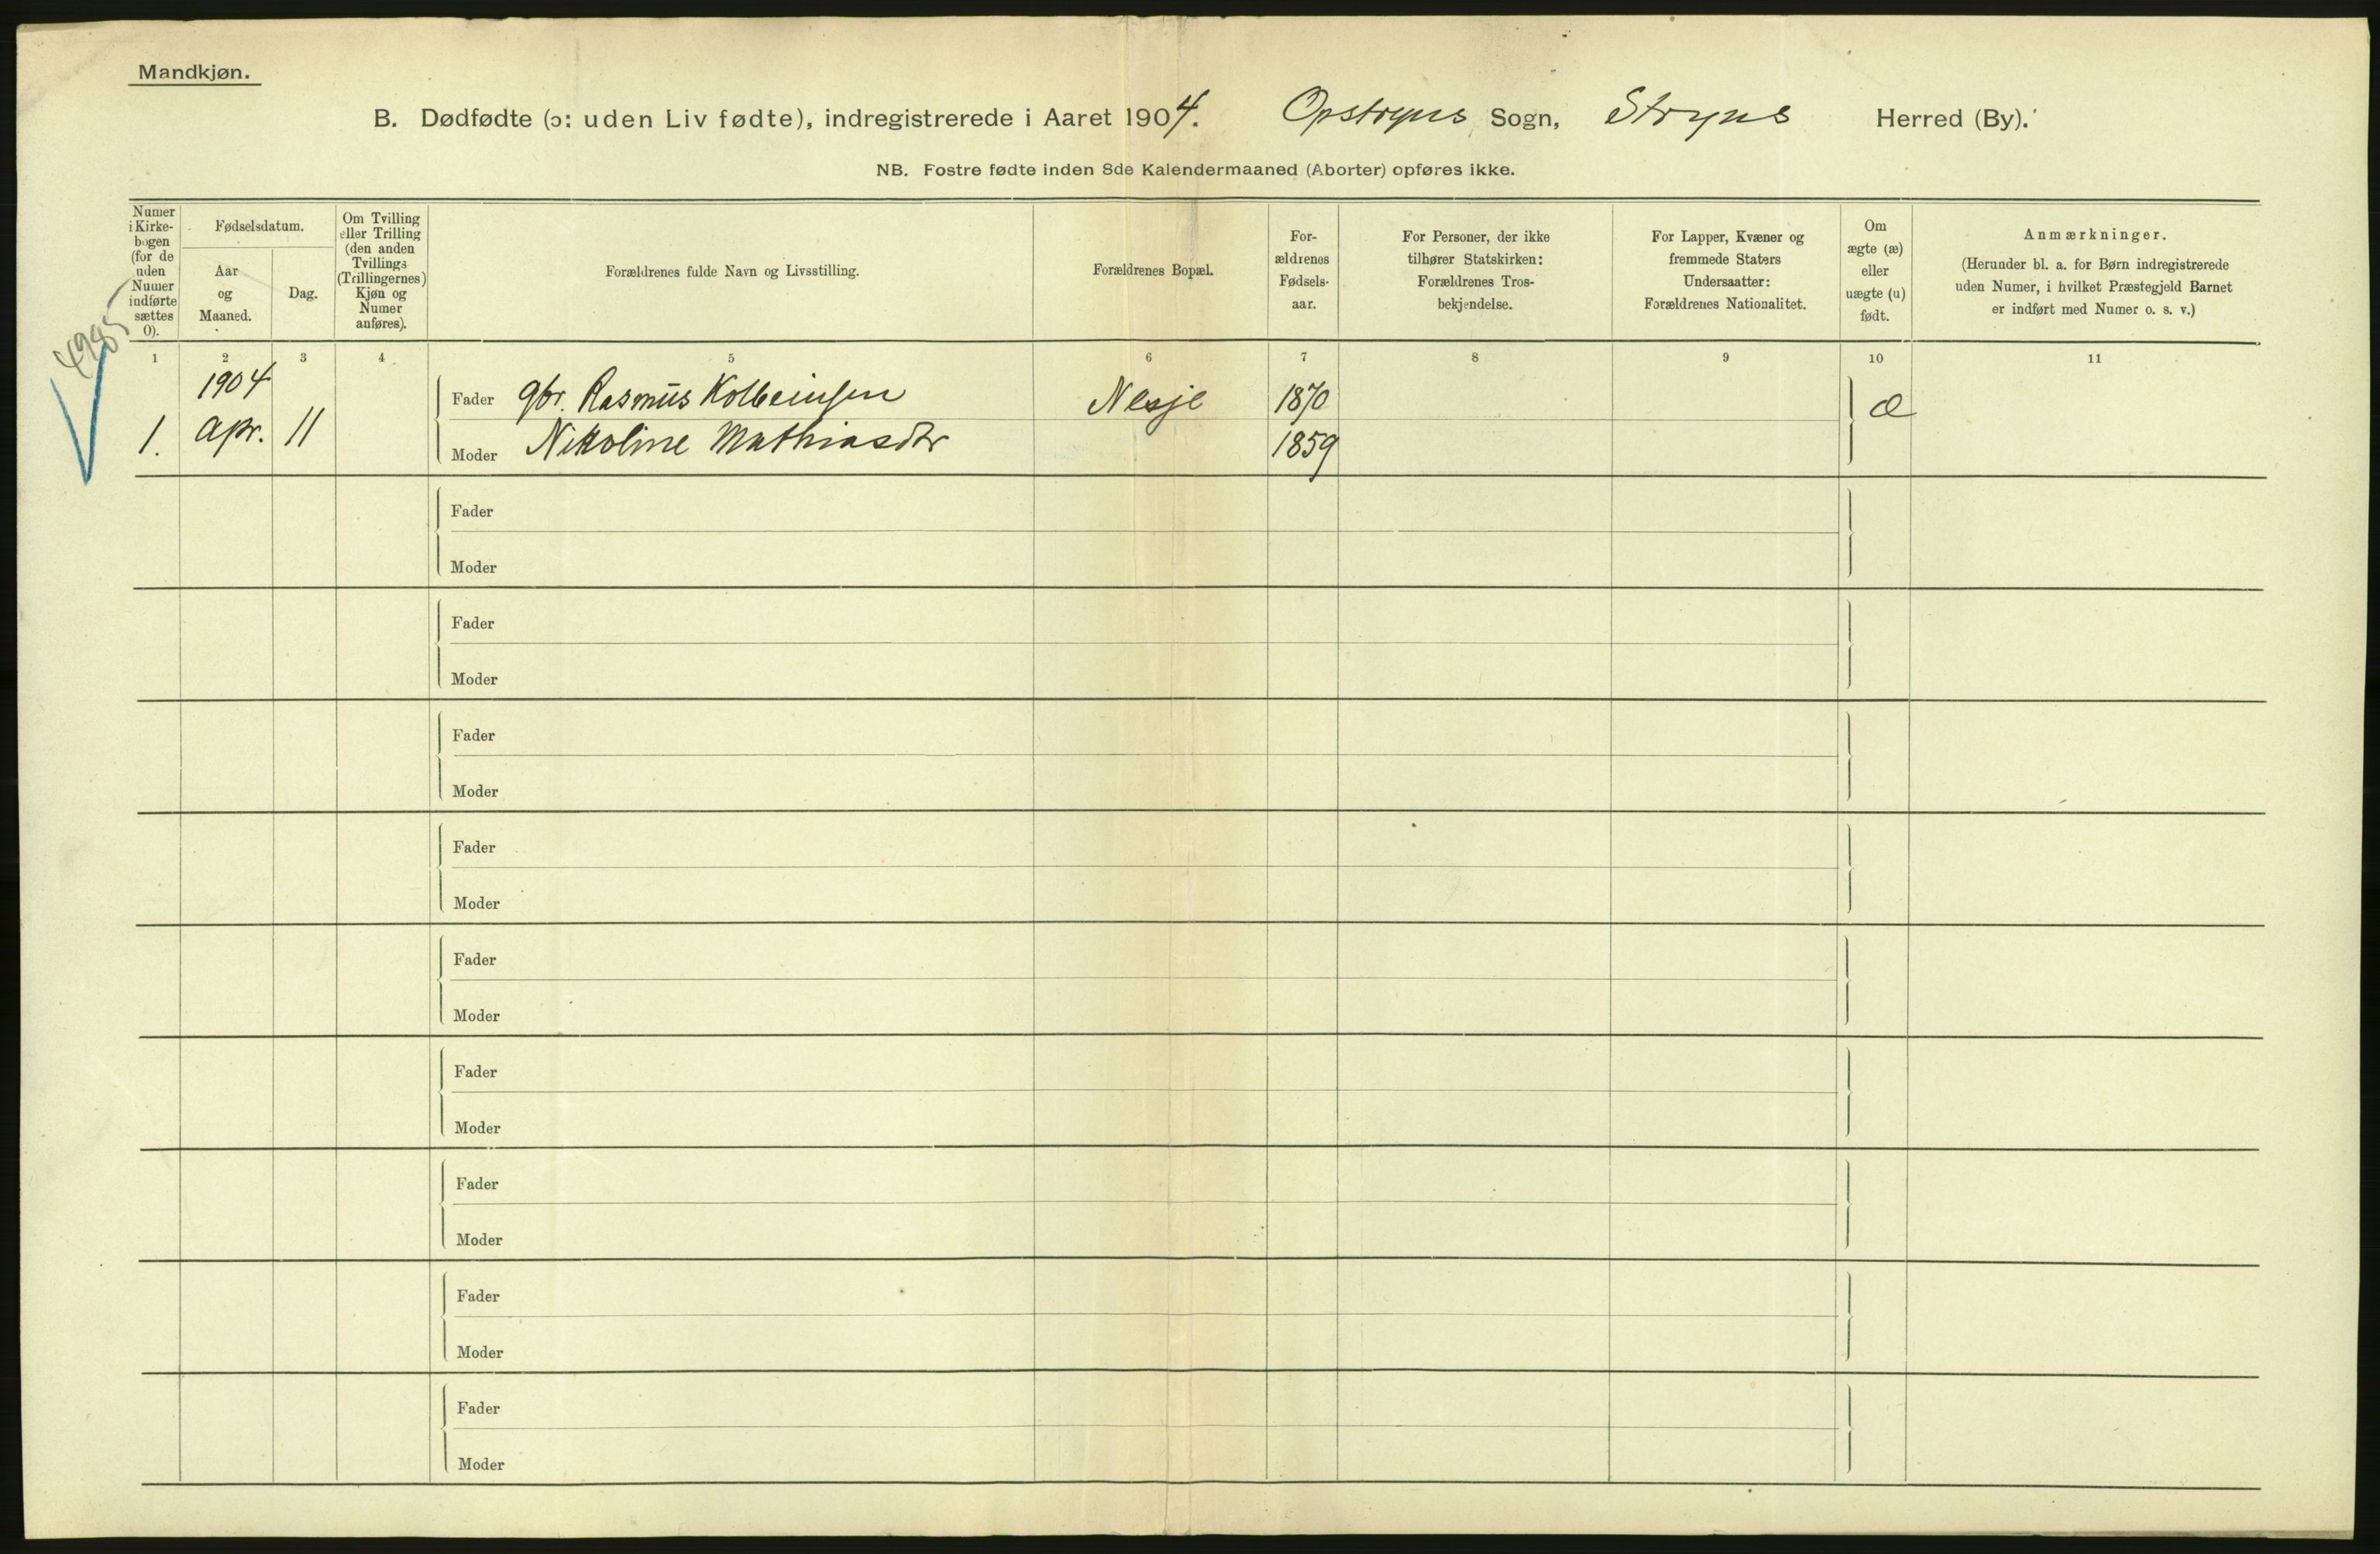 Mandkjøn.
B. Dødfødte (ɔ: uden Liv fødte), indregistrerede i Aaret 1904. Opstryns Sogn, Stryns Herred (By).
NB. Fostre fødte inden 8de Kalendermaaned (Aborter) opføres ikke.
Numer
i Kirke-
bogen
(for de
uden
Numer
indførte
sættes
0).
Fødselsdatum.
Aar
og
Maaned.
Dag.
Om Tvilling
eller Trilling
(den anden
Tvillings
(Trillingernes)
Kjøn og
Numer
anføres).
Forældrenes fulde Navn og Livsstilling.
Forældrenes Bopæl.
For-
ældrenes
Fødsels-
aar.
For Personer, der ikke
tilhører Statskirken:
Forældrenes Tros-
bekjendelse.
For Lapper, Kvæner og
fremmede Staters
Undersaatter:
Forældrenes Nationalitet.
Om
ægte (æ)
eller
uægte (u)
født.
Anmærkninger.
(Herunder bl. a. for Børn indregistrerede
uden Numer, i hvilket Præstegjeld Barnet
er indført med Numer o. s. v.)
1 2 3 4 5 6 7 8 9 10 11
4985
1904
Fader gbr. Rasmus Kolbeinsen Nesje 1870 æ
1. Apr. 11
Moder Nikoline Mathiasdtr 1859
Fader
Moder
Fader
Moder
Fader
Moder
Fader
Moder
Fader
Moder
Fader
Moder
Fader
Moder
Fader
Moder
Fader
Moder